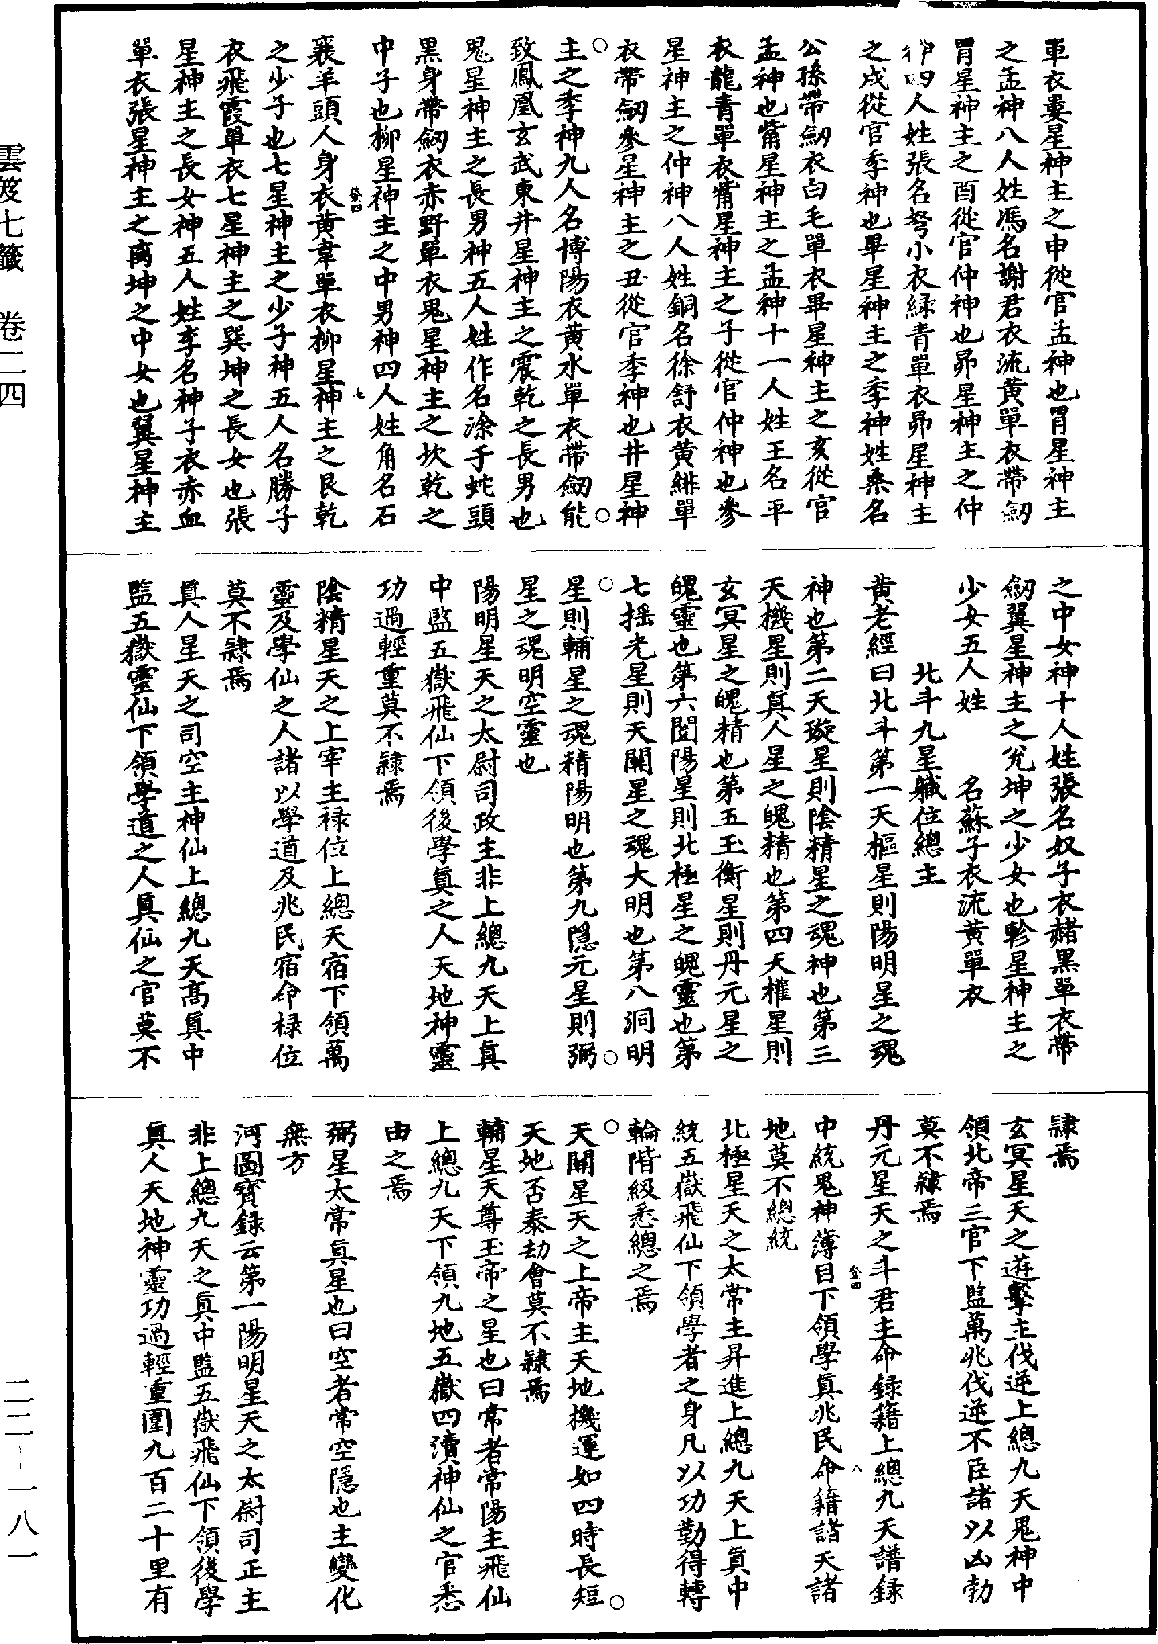 單衣婁星神主之申從官孟神也胃星神主
之孟神八人姓馮名謝君衣流黃單衣帶劒
胃星神主之酉從官仲神也昴星神主之仲
神四人姓張名弩小衣綠青單衣昴星神主
之戌從官季神也畢星神主之季神姓桑名
公孫帶劒衣白毛單衣畢星神主之亥從官
孟神也觜星神主之孟神十一人姓王名平
衣龍青單衣觜星神主之子從官仲神也參
星神主之仲神八人姓銅名徐舒衣黃緋單
衣帶劒參星神主之丑從官季神也井星神
主之季神九人名博陽衣黃水單衣帶劒能
致鳳凰玄武東井星神主之震乾之長男也
鬼星神主之長男神五人姓作名涂于蛇頭
黑身帶劒衣赤野單衣鬼星神主之坎乾之
中子也柳星神主之中男神四人姓角名石
襄羊頭人身衣黃韋單衣柳星神主之艮乾
之少子也七星神主之少子神五人名勝子
衣飛霞單衣七星神主之巽坤之長女也張
星神主之長女神五人姓李名神子衣赤血
單衣張星神主之离坤之中女也翼星神主
之中女神十人姓張名奴子衣赭黑單衣帶
劒翼星神主之兊坤之少女也軫星神主之
少女五人姓　　名蘇子衣流黃單衣
北斗九星軄位總主
黃老經曰北斗第一天樞星則陽明星之魂
神也第二天璇星則陰精星之魂神也第三
天機星則真人星之魄精也第四天權星則
玄冥星之魄精也第五玉衡星則丹元星之
魄靈也第六闓陽星則北極星之魄靈也第
七摇光星則天關星之魂大明也第八洞明
星則輔星之魂精陽明也第九隱元星則弼
星之魂明空靈也
陽明星天之太尉司政主非上總九天上真
中監五嶽飛仙下領後學真之人天地神靈
功過輕重莫不隸焉
陰精星天之上宰主祿位上總天宿下領萬
靈及學仙之人諸以學道及兆民宿命祿位
莫不隸焉
真人星天之司空主神仙上總九天高真中
監五嶽靈仙下領學道之人真仙之官莫不
隸焉
玄冥星天之遊擊主伐逆上總九天鬼神中
領北帝三官下監萬兆伐逆不臣諸以凶勃
莫不隸焉
丹元星天之斗君主命録籍上總九天譜録
中統鬼神簿目下領學真兆民命籍諸天諸
地莫不總統
北極星天之太常主昇進上總九天上真中
統五嶽飛仙下領學者之身凡以功勤得轉
輪階級悉總之焉
天關星天之上帝主天地機運如四時長短
天地否泰劫會莫不隸焉
輔星天尊玉帝之星也曰常者常陽主飛仙
上總九天下領九地五嶽四瀆神仙之官悉
由之焉
弼星太常真星也曰空者常空隱也主變化
無方
河圖寶錄云第一陽明星天之太尉司正主
非上總九天之真中監五嶽飛仙下領後學
真人天地神靈功過輕重圍九百二十里有
雲笈七籤　卷二四
二二-一八一